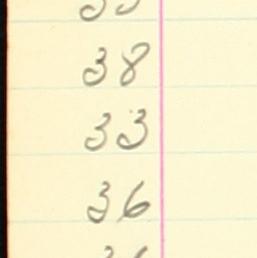 38
33
36